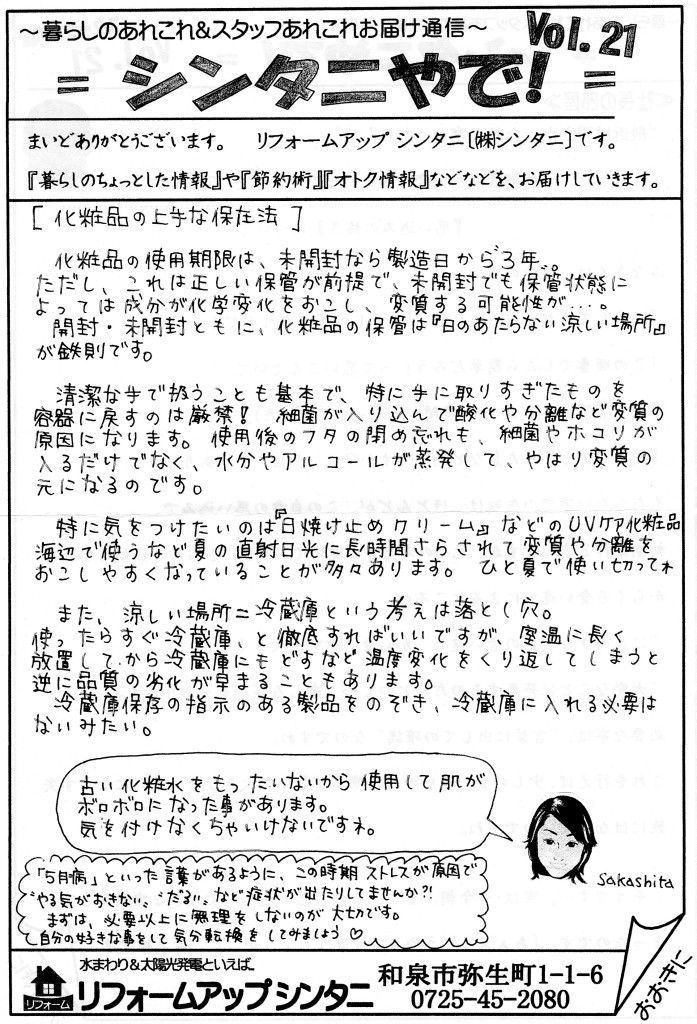 ～暮らしのあれこれ&スタッフあれこれお届け通信～
Vol. 21
= シンタニやで! =
まいどありがとうございます。 リフォームアップ シンタニ〔㈱シンタニ〕です。
『暮らしのちょっとした情報』や『節約術』『オトク情報』などなどを、お届けしていきます。
[ 化粧品の上手な保在法 ]
化粧品の使用期限は、未開封なら製造日から3年。
ただし、これは正しい保管が前提で、未開封でも保管状態に
よっては成分が化学変化をおこし、変質する可能性が…。
開封・未開封ともに、化粧品の保管は『日のあたらない涼しい場所』
が鉄則です。
清潔な手で扱うことも基本で、特に手に取りすぎたものを
容器に戻すのは厳禁! 細菌が入り込んで酸化や分離など変質の
原因になります。使用後のフタの閉め忘れも、細菌やホコリが
入るだけでなく、水分やアルコールが蒸発して、やはり変質の
元になるのです。
特に気をつけたいのは『日焼け止めクリーム』などのUVケア化粧品
海辺で使うなど夏の直射日光に長時間さらされて変質や分離を
おこしやすくなっていることが多々あります。 ひと夏で使い切ってネ
また、涼しい場所=冷蔵庫という考えは落とし穴。
使ったらすぐ冷蔵庫、と徹底すればいいですが、室温に長く
放置してから冷蔵庫にもどすなど温度変化をくり返してしまうと
逆に品質の劣化が早まることもあります。
冷蔵庫保存の指示のある製品をのぞき、冷蔵庫に入れる必要は
ないみたい。
古い化粧水をもったいないから使用して肌が
ボロボロになった事があります。
気を付けなくちゃいけないですネ。
Sakashita
「5月病」といった言葉があるように、この時期ストレスが原因で
"やる気がおきない"、"だるい"、など症状が出たりしてませんか?!
まずは、必要以上に無理をしないのが大切です。
自分の好きな事をして気分転換をしてみましょう♡
おおきに
水まわり&太陽光発電といえば、
リフォーム
リフォームアップシンタニ
和泉市弥生町1-1-6
0725-45-2080